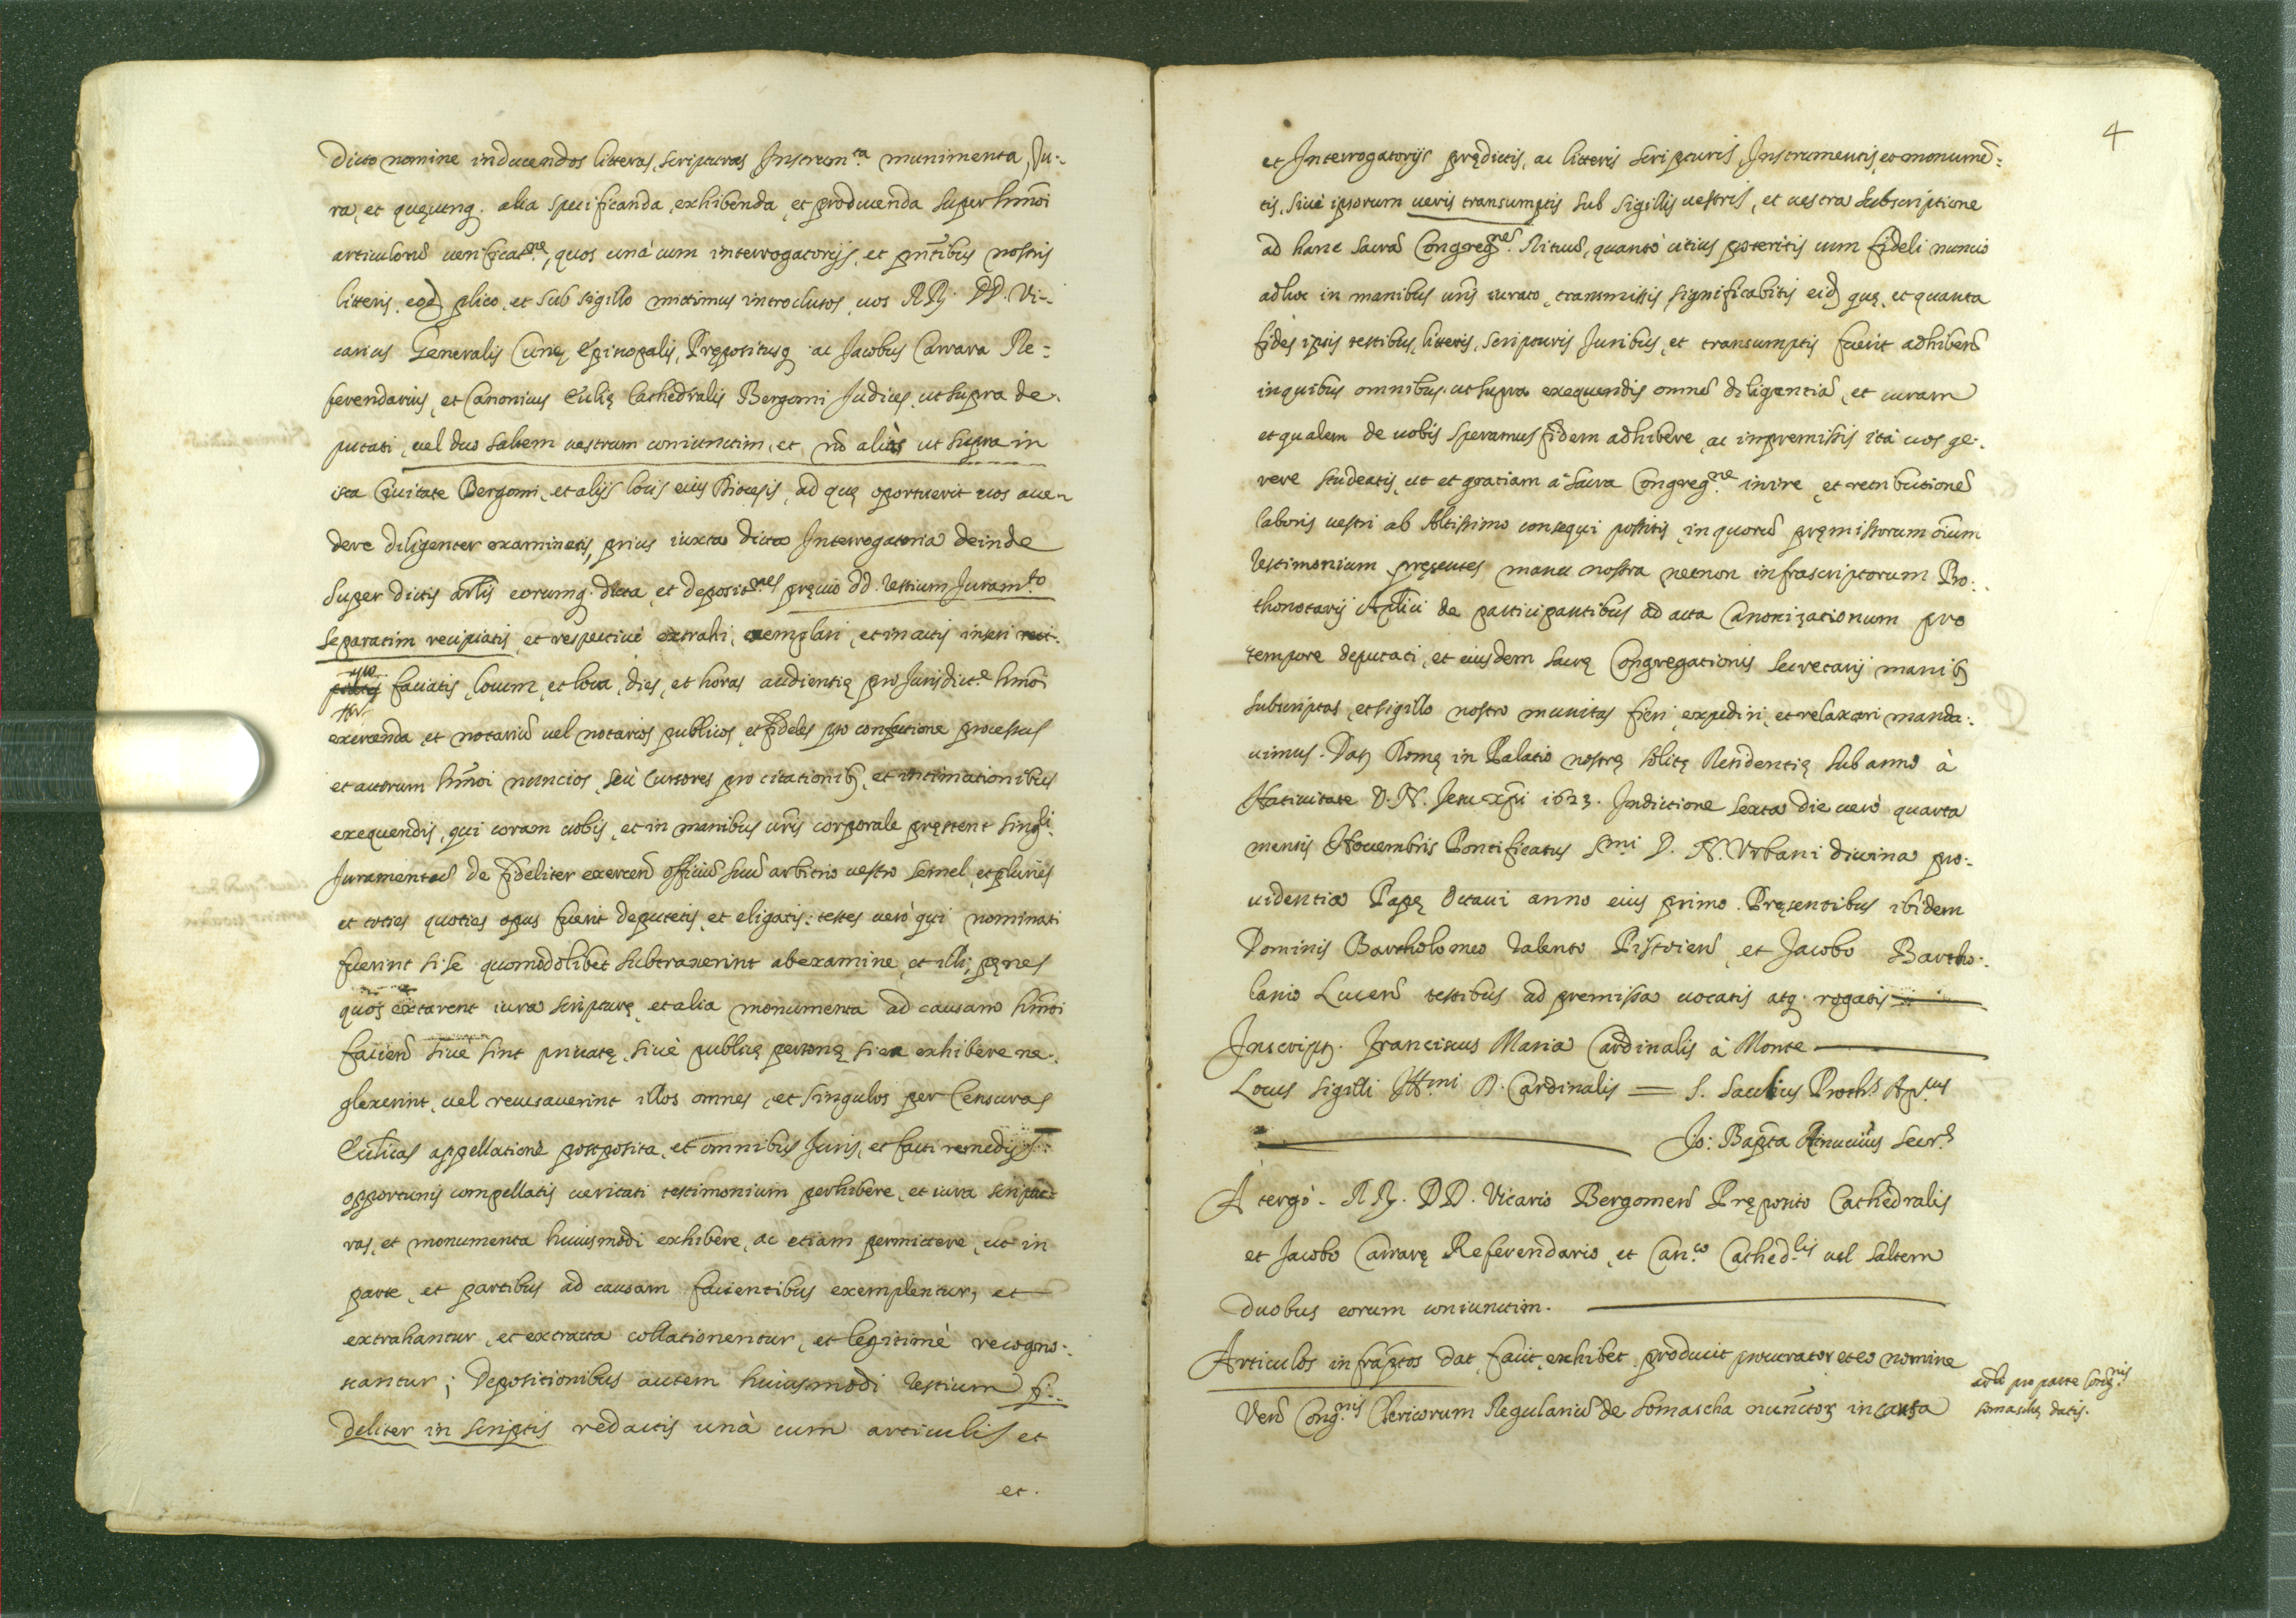 dicto nomine inducendos litteras, scripturas, Instrum.ta munimenta, Ju-
ra, et quęcunq. alia specificanda, exhibenda, et producenda super hmōi
articulorū verificat.ne, quos unà cum interrogatorijs, et pn̄tibus nostris
litteris, eod. plico, et sub sigillo mittimus introclusos, vos RR. DD. Vi-
carius Generalis Curię Episcopalis, Prępositusq. ac Jacobus Carrara Re-
ferendarius, et Canonicus Ecclię Cathedralis Bergomi Judices, ut supra de-
putati, vel duo saltem vestrum coniunctim, et nō aliàs ut supra in
ista Civitate Bergomi, et alijs locis eius Diocesis, ad quę oportuerit vos acce-
dere diligenter examinetis, prius iuxta dicta Interrogatoria deinde
super dictis artlis eorumq. dicta, et deposit.nes pręvio dd. testium Juram.to
separatim recipiatis, et respectivè extrahi, exemplari, et in actis inseri
faciatis, locum, et loca, dies, et horas audientię pro Jurisdict.e hmōi
exercenda, et notariū vel notarios publicos, et fideles pro confectione processus
et actorum hmōi nuncios, seù Cursores pro citationib. et intimationibus
exequendis, qui coram vobis, et in manibus vr̄is corporale pręstent singli.
Juramentū de fideliter exercen̄ officiū suū arbitrio vestro semel, et pluries
et toties quoties opus fuerit deputetis, et eligatis: testes verò qui nominati
fuerint si se quomodolibet subtraxerint ab examine, et illi, pęnes
quos extarent iura scripturę, et alia monumenta ad causam hmōi
facien̄ sive sint privatę, sivè publicę personę si ea exhibere ne-
glexerint, vel recusaverint illos omnes, et singulos per Censuras
Ecclīcas appellatione postposita, et omnibus Juris, et facti remedijs
opportunis compellatis veritati testimonium perhibere, et iura scriptu-
ras, et monumenta huiusmodi exhibere, ac etiam permittere, ut in
parte, et partibus ad causam facientibus exemplentur, et
extrahantur, et extracta collationentur, et legitimè recogno-
scantur; Depositionibus autem huiusmodi testium fi-
deliter in scriptis redactis unà cum articulis et
et.
4
et Interrogatorijs prędictis, ac litteris scripturis, Instrumentis, et monumē-
tis, sivè ipsorum veris transumptis sub sigillis vestris, et vestra subscriptione
ad hanc Sacrā Congreg.nē Rituū, quantò citius poteritis cum fideli nuncio
ad hoc in manibus vr̄is iurato, transmissis significabitis eid. quę, et quanta
fides ipsis testibus, litteris, scripturis Juribus, et transumptis fuerit adhiben̄
in quibus omnibus ut supra exequendis omnē diligentiā, et curam
et qualem de vobis speramus fidem adhibere, ac in premissis ità vos ge-
rere studeatis, ut et gratiam à Sacra Congreg.ne inire, et retributionē
laboris vestri ab Altissimo consequi possitis, in quorū pręmissorum oīum
testimonium pręsentes manu nostra necnon infrascriptorum Pro-
thonotarij Aplici de participantibus ad acta Canonizationum pro
tempore deputati, et eiusdem Sacrę Congregationis Secretarij manib.
subscriptas, et sigillo nostro munitas fieri, expediri, et relaxari manda-
vimus. Dat. Romę in Palatio nostrę solitę Residentię sub anno à
Nativitate D. N. Jesu Xpi 1623. Indictione sexta die verò quarta
mensis Novembris Pontificatus S.mi D. N. Urbani divina pro-
videntia Papę Octavi anno eius primo. Pręsentibus ibidem
Dominis Bartholomeo Talento Pistorien̄ et Jacobo Bartho-
lanio Lucen̄ testibus ad premissa vocatis atq. rogatis
Inscript. Franciscus Maria Cardinalis à Monte
Locus Sigilli Ill.mi D. Cardinalis = S. Saulius Proth.s Ap.cus
Jo: Bapta Rinuccius Secr.s
A tergò. RR. DD. Vicario Bergomen̄ Pręposito Cathedralis
et Jacobo Carrarę Referendario, et Can.co Cathed.lis vel saltem
duobus eorum coniunctim.
Articulos infraptos dat, facit, exhibet, producit procurator et eo nomine
Ven̄ Cong.nis Clericorum Regulariū de Somascha nunctor. in causa
artli pro parte Cong.nis
somaschę datis.